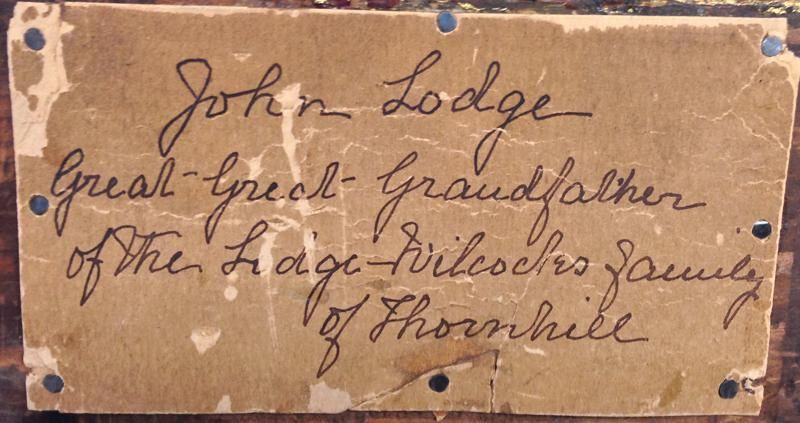 John Lodge
Great-Great-Grandfather
of the Lodge-Wilcocks family
of Thornhill